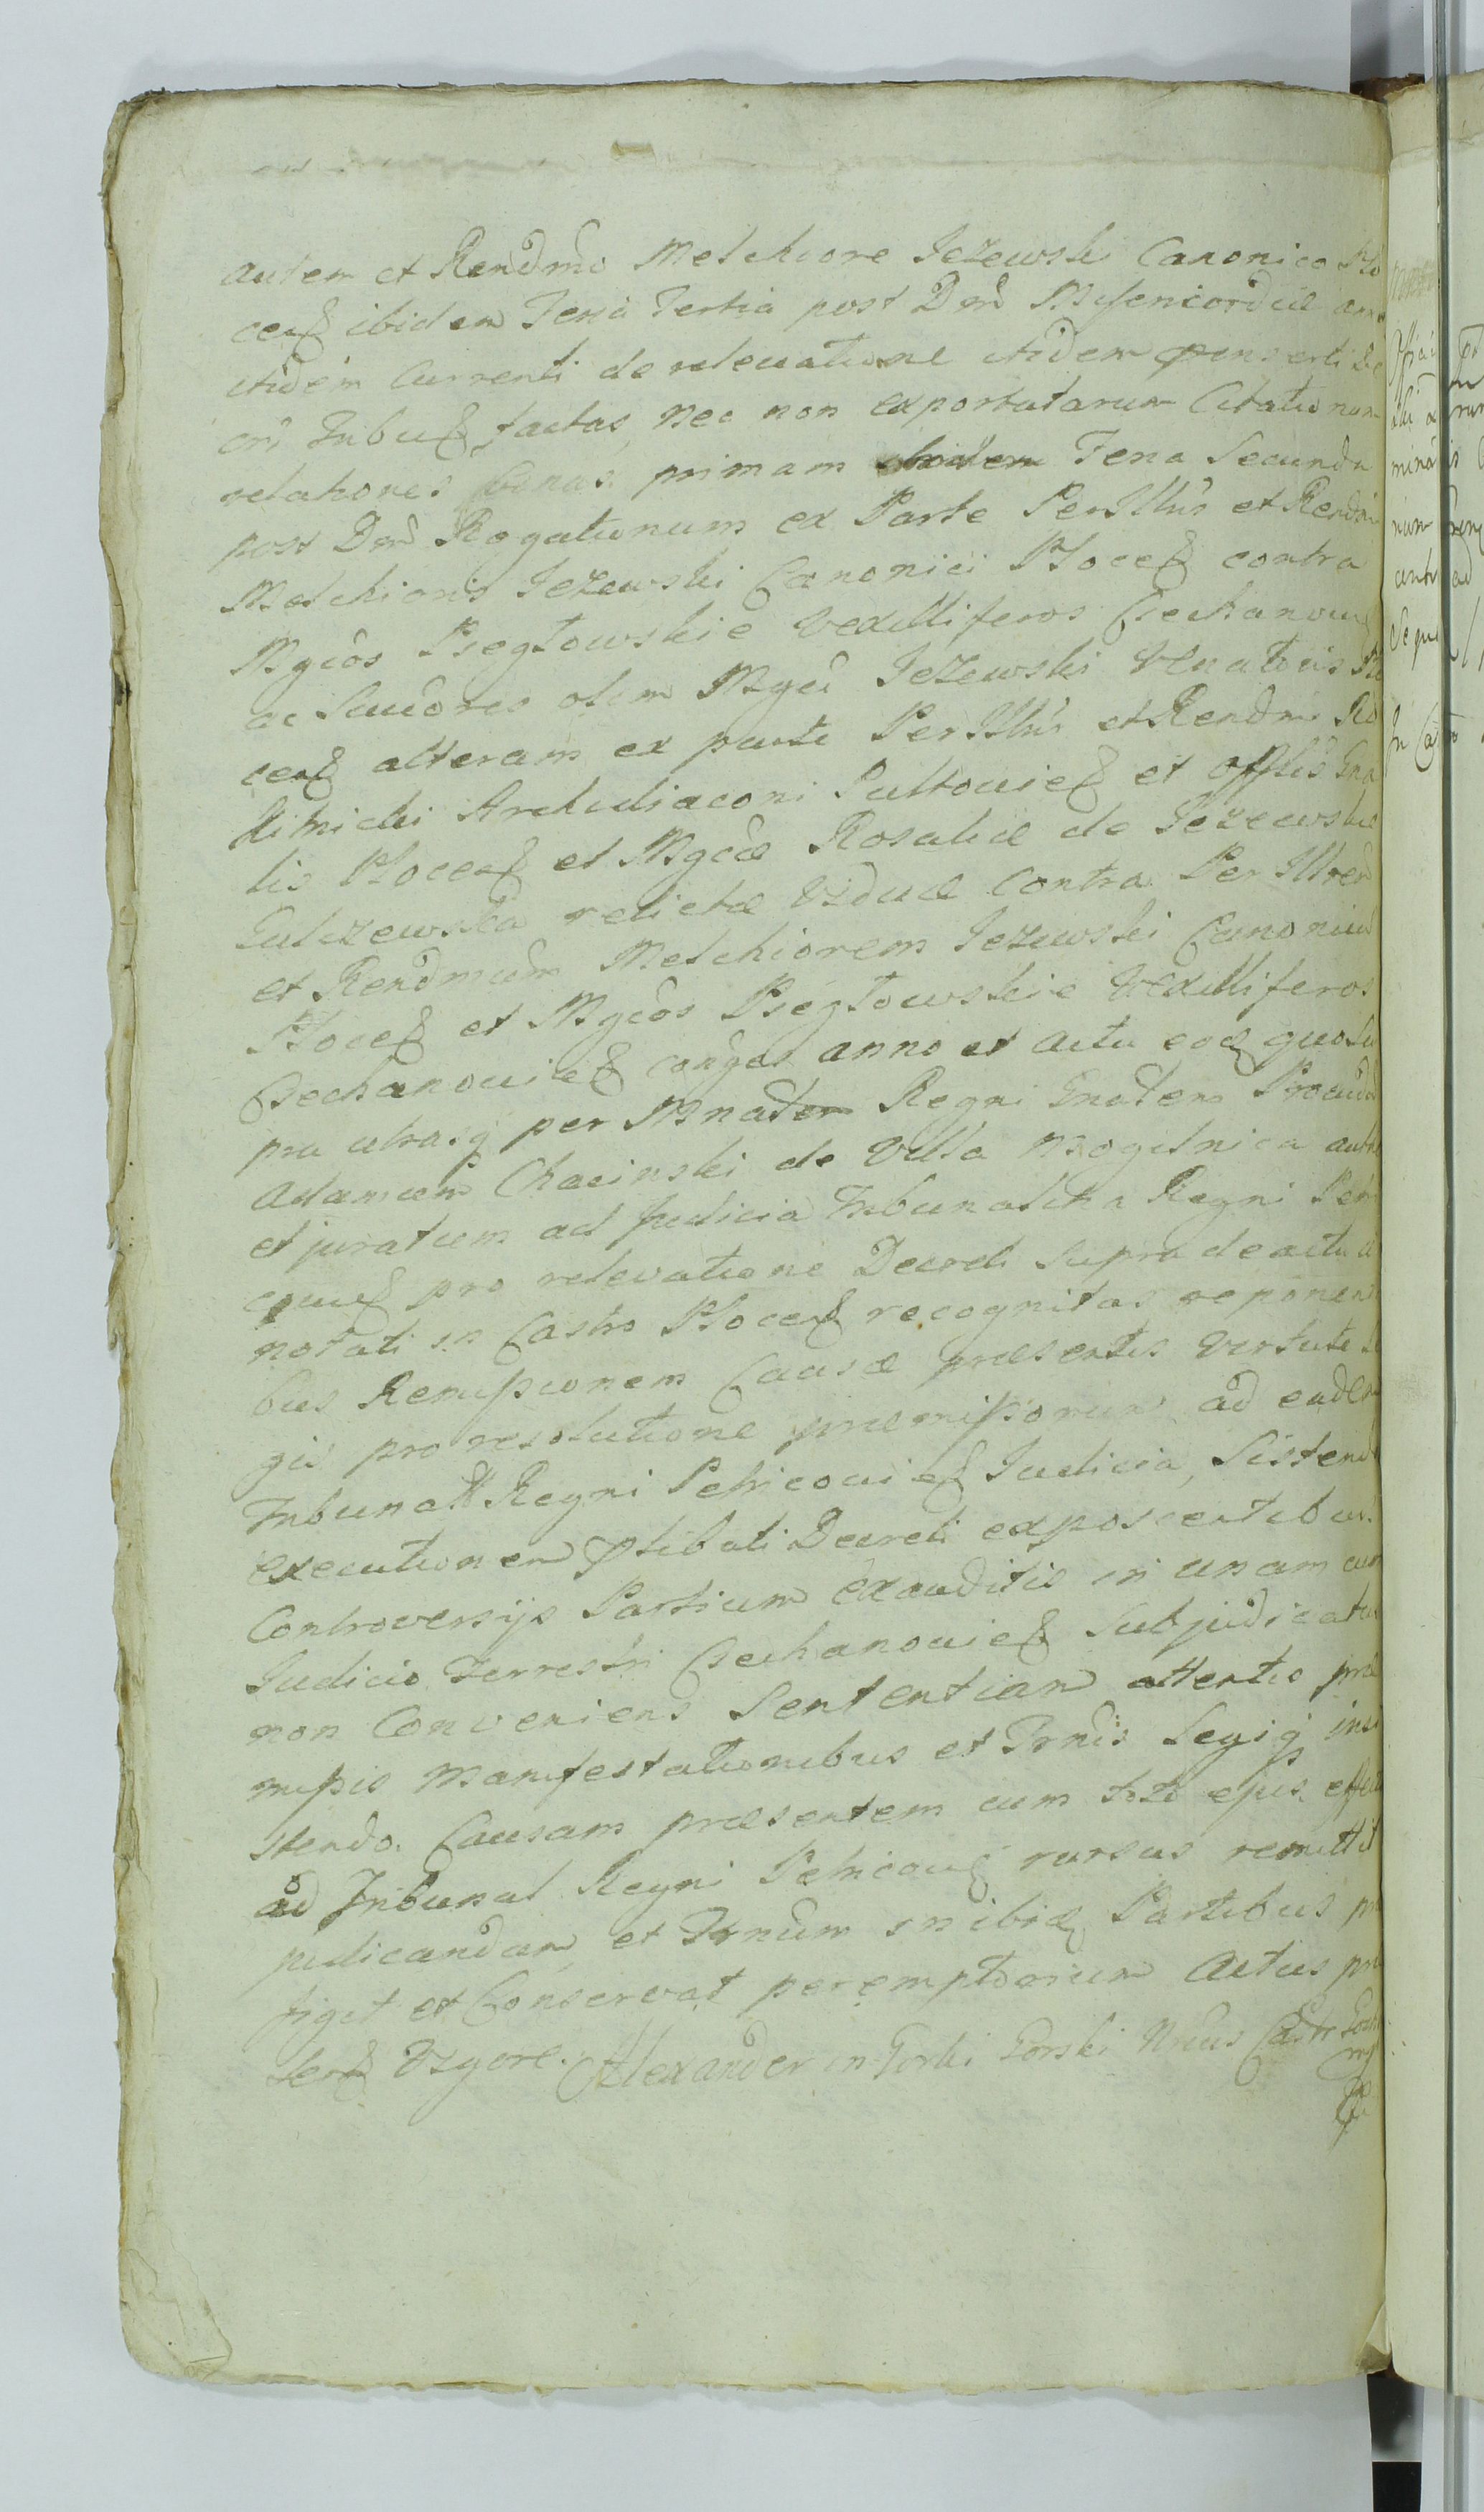 autem et Rendmo Melchiore Jeżewski Canonico Plo
cen ibidem Feria Tertia post Dnm Misericordiæ
itidem Currenti de relevatione itidem
cri Tribu factas, nec non exportatarum Citationum
relationes binas: primam ibidem Feria Secunda
post Dnm Rogationum ex Parte Perillris et Rendmi
Melchioris Jeżewski Canonici Plocen contra
Mgcos Psegłowskie Vexilliferos Ciechanov
ac Succores olim Mgci Jeżewski Venatoris Plo
cen alteram ex parte Perillris et Rendmi
Archidiaconi Pultovien et Offlis Gna
lis Plocen et Mgcæ Rosaliæ de Jeżewskie
relictæ Viduæ Contra Perillrem
et Rendmum Melchiorem Jeżewski Canonicum
Plocen et Mgcos Psegłowskie Vexilliferos
Ciechanovien conges anno et actu eoq quo su
pra utrasq per Mnatem Regni Gnalem Providum
Adamum Chacinski de Villa Mogilnica auth
et juratum ad Judicia Tribunalitia Regni Petri
coven pro relevatione Decreti supra de actu
notati in Castro Plocen recognitas reponen
bus Remissionem Causæ præsentis virtute
gis pro resolutione præmissorum ad eadem
Tribunalia Regni Petricovien Judicia, Sisten
executionem ptibati Decreti exposcentibus.
Controversijs Partium exauditis in unam cum
Judicio Terrestri Ciechanovien Subjudicatu
non Conveniens Sententiam attentis præ
missis Manifestationibus et Trnis Legiq insi
stendo. Causam præsentem cum toto ejus effectu
ad Tribunal Regni Petricov rursus remittit
judicandam et Trnum inibiq Partibus præ
figit et Conservat peremptorium Actus præ
sen Vigore. Alexander in Gorki Gorski Vices Castr